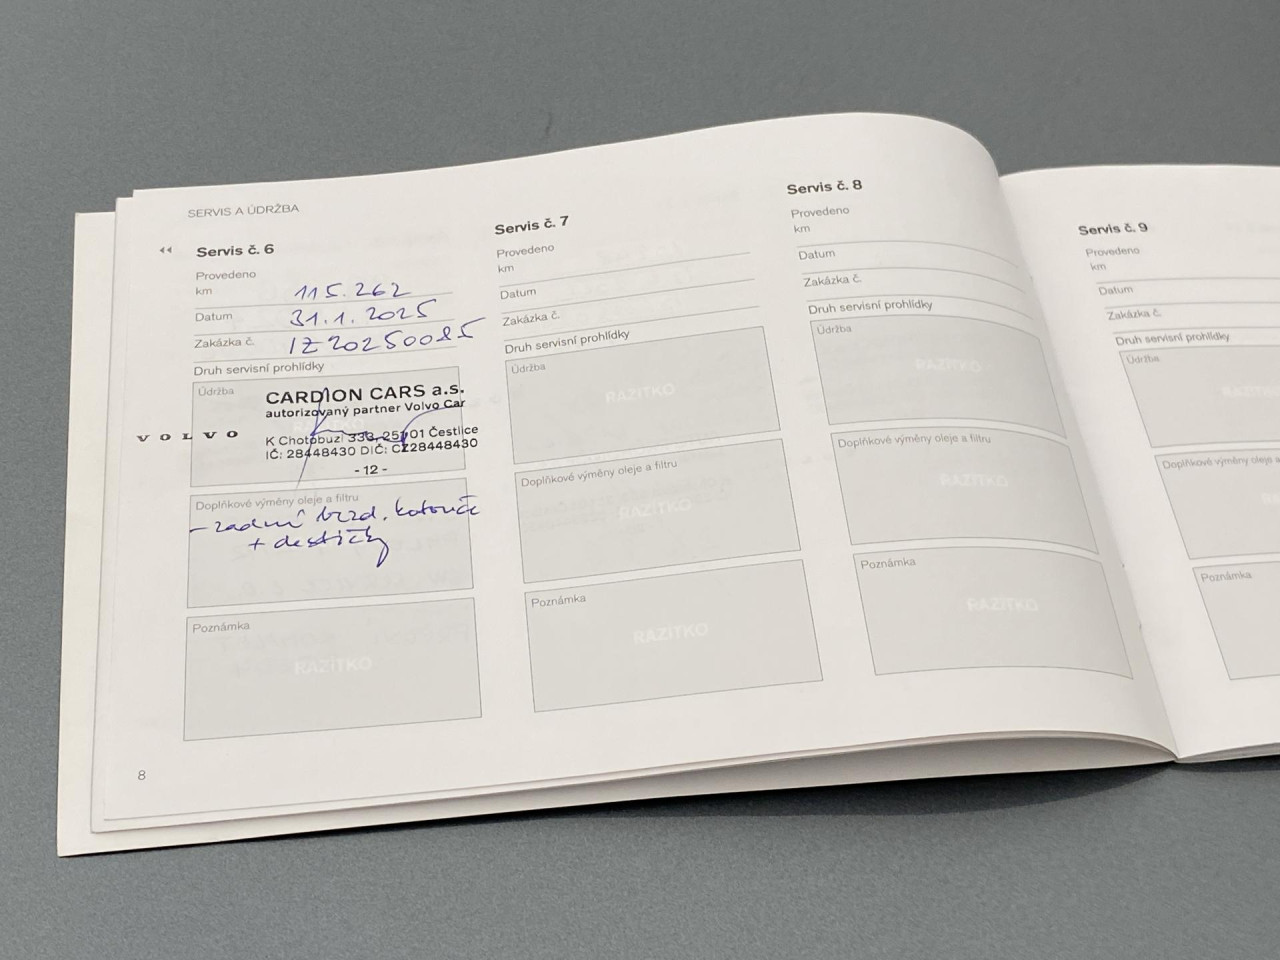 SERVIS A ÚDRŽBA
◂◂ Servis č. 6
Provedeno
km 115.262
Datum 31.1.2025
Zakázka č. IZ20250085
Druh servisní prohlídky
Údržba
CARDION CARS a.s.
autorizovaný partner Volvo Car
VOLVO
K Chotobuzi 333, 251 01 Čestlice
IČ: 28448430 DIČ: CZ28448430
- 12 -
Doplňkové výměny oleje a filtru
- zadní brzd. kotouče
+ destičky
Poznámka
RAZÍTKO
8
Servis č. 7
Provedeno
km
Datum
Zakázka č.
Druh servisní prohlídky
Údržba
RAZÍTKO
Doplňkové výměny oleje a filtru
RAZÍTKO
Poznámka
RAZÍTKO
Servis č. 8
Provedeno
km
Datum
Zakázka č.
Druh servisní prohlídky
Údržba
RAZÍTKO
Doplňkové výměny oleje a filtru
RAZÍTKO
Poznámka
RAZÍTKO
Servis č. 9
Provedeno
km
Datum
Zakázka č.
Druh servisní prohlídky
Údržba
Doplňkové výměny oleje a
Poznámka